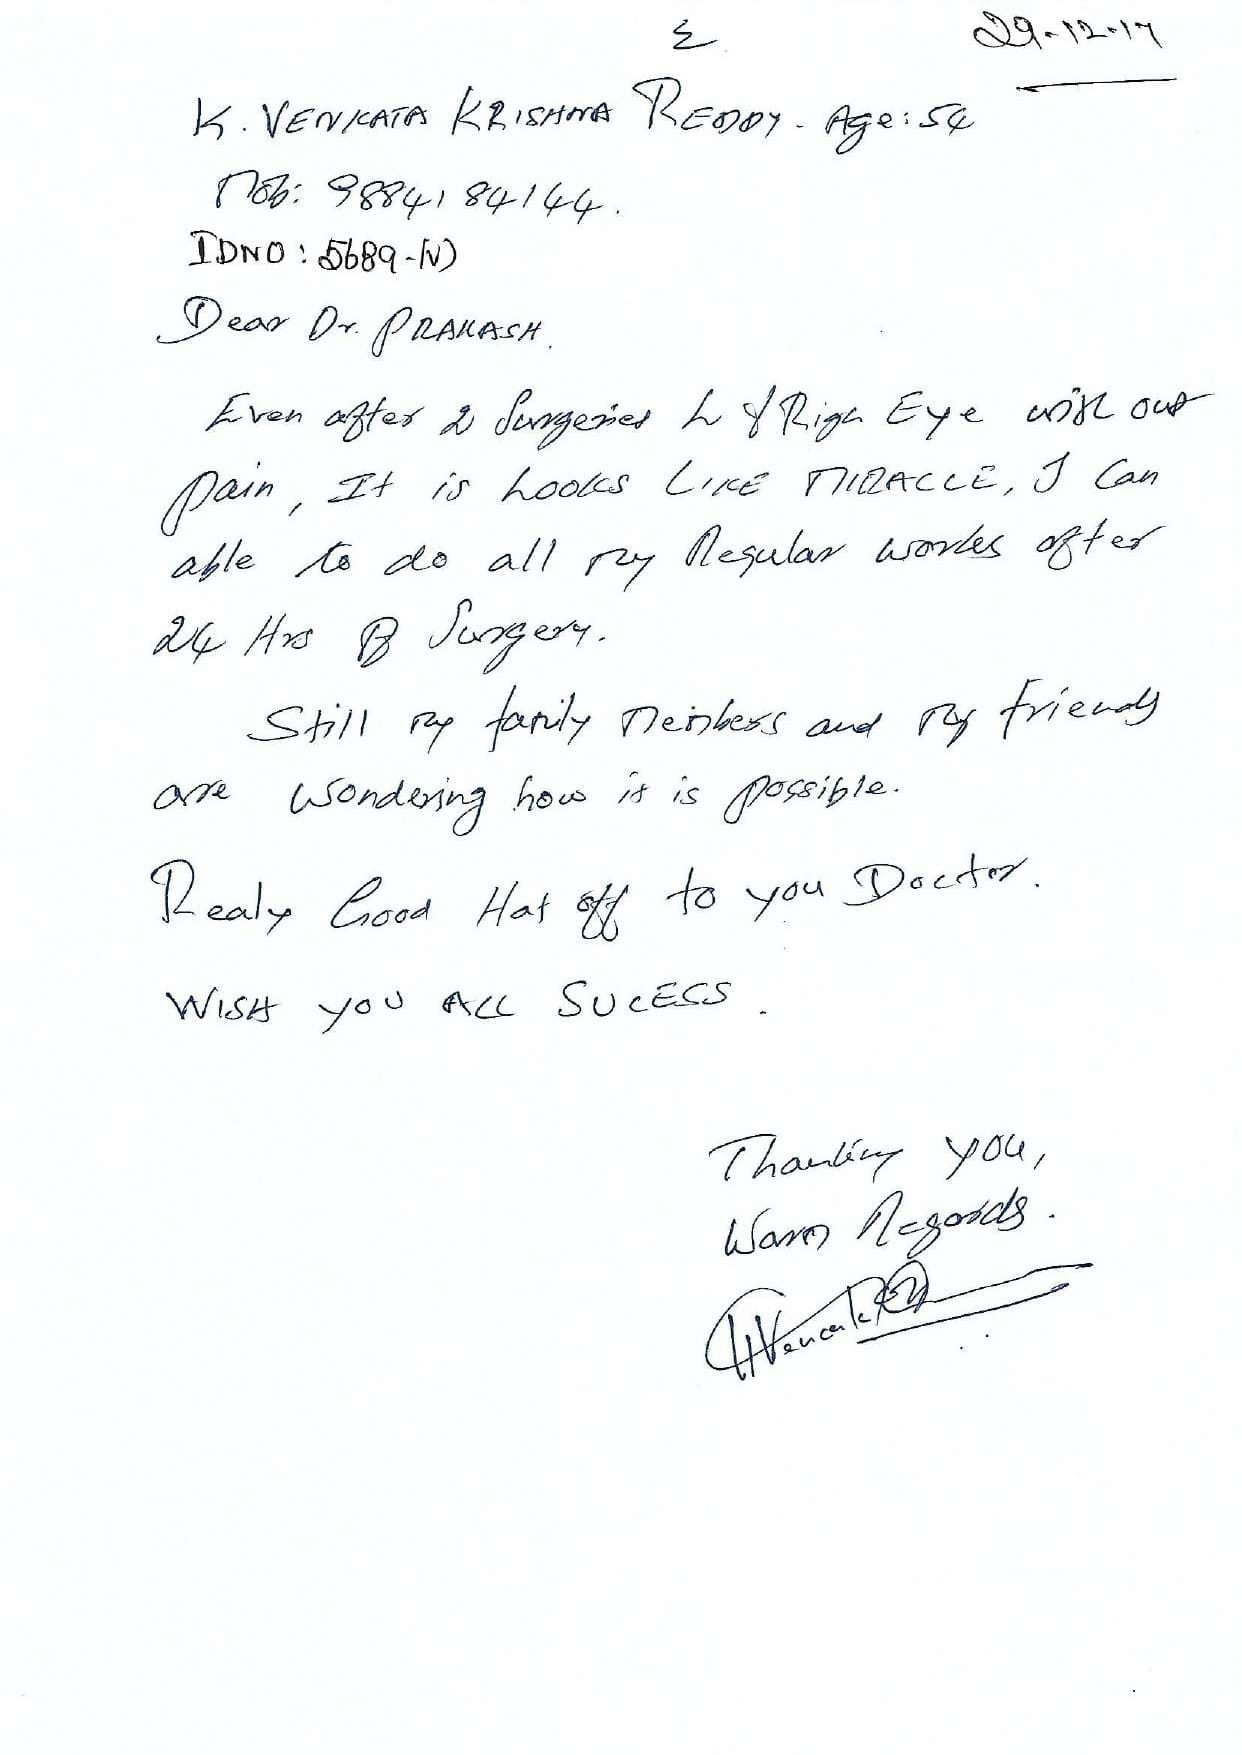 29-12-17
K. VENKATA KRISHNA REDDY. Age: 54
Mob: 9884184144.
IDNO: 5689-(V)
Dear Dr. PRAKASH.
Even after 2 Surgeries L & Righ Eye with out
pain, It is Looks LIKE MIRACLE, I Can
able to do all my Regular works after
24 Hrs of Surgery.
Still my family members and my friends
are wondering how it is possible.
Realy Good Hat off to you Doctor.
WISH YOU ALL SUCESS.
Thanking you,
Warm Regards.